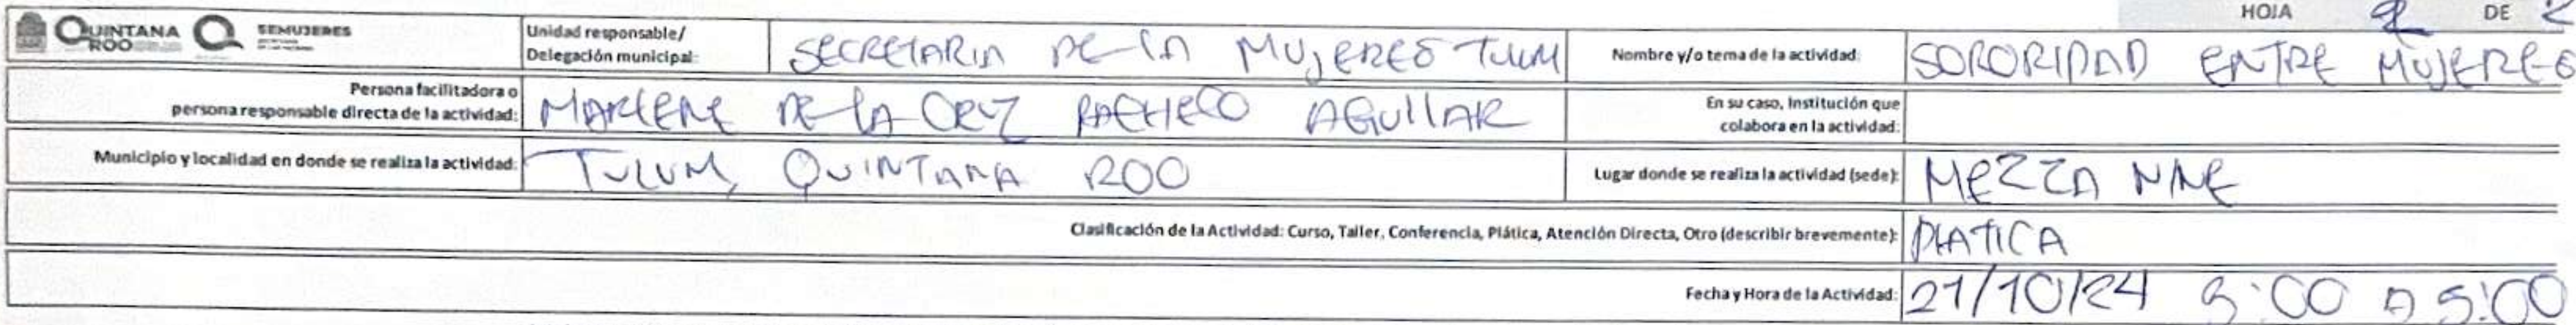 HOJA 2 DE 2
QUINTANA ROO SEMUJERES
Unidad responsable/ Delegación municipal: SECRETARIA DE LA MUJERES TULUM
Nombre y/o tema de la actividad: SORORIDAD ENTRE MUJERES
Persona facilitadora o persona responsable directa de la actividad: MARLENE DE LA CRUZ PACHECO AGUILAR
En su caso, Institución que colabora en la actividad:
Municipio y localidad en donde se realiza la actividad: TULUM, QUINTANA ROO
Lugar donde se realiza la actividad (sede): MEZZA NINE
Clasificación de la Actividad: Curso, Taller, Conferencia, Plática, Atención Directa, Otro (describir brevemente): PLATICA
Fecha y Hora de la Actividad: 21/10/24 3:00 A 5:00